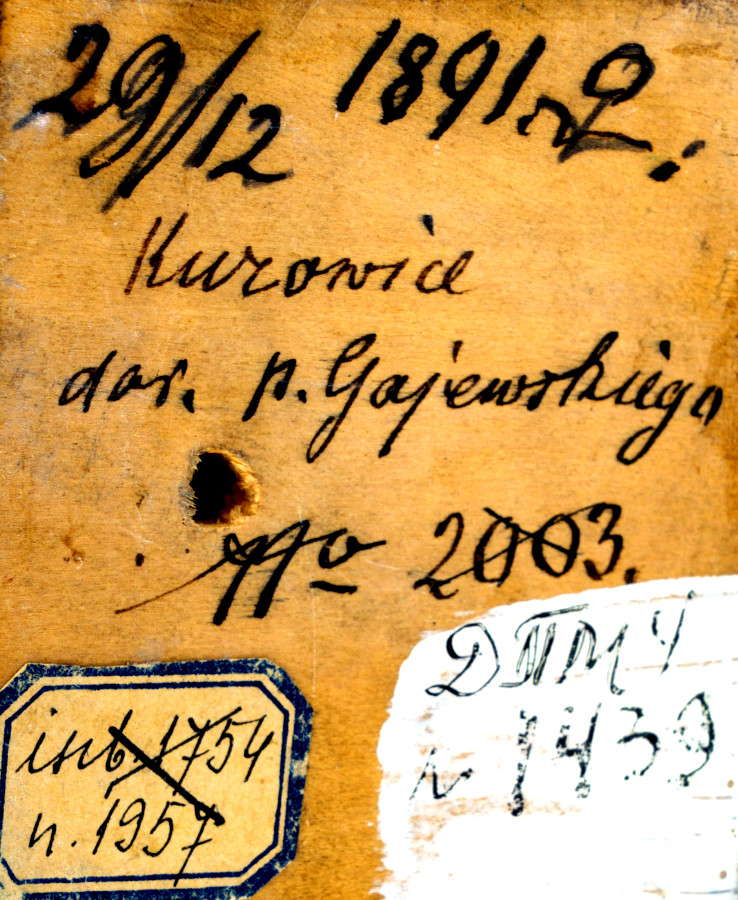 29/12 1891 r.
Kurowice
dar. p. Gajewskiego
No 2003.
ДПМЧ
N 1439
inb. 1754
n. 1957